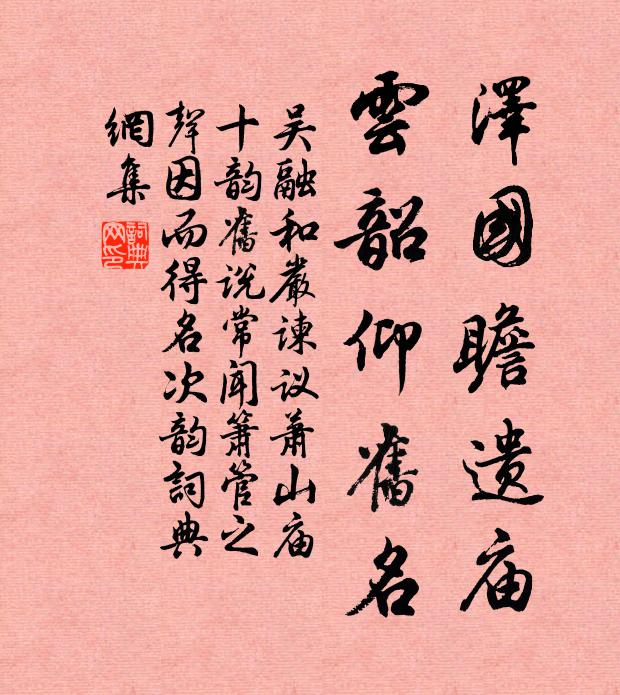 澤國瞻遺庙
雲韶仰舊名
吴融和嚴諫议萧山庙
十韵舊说常闻箫管之
聲因而得名次韵詞典
網集
詞典
网印